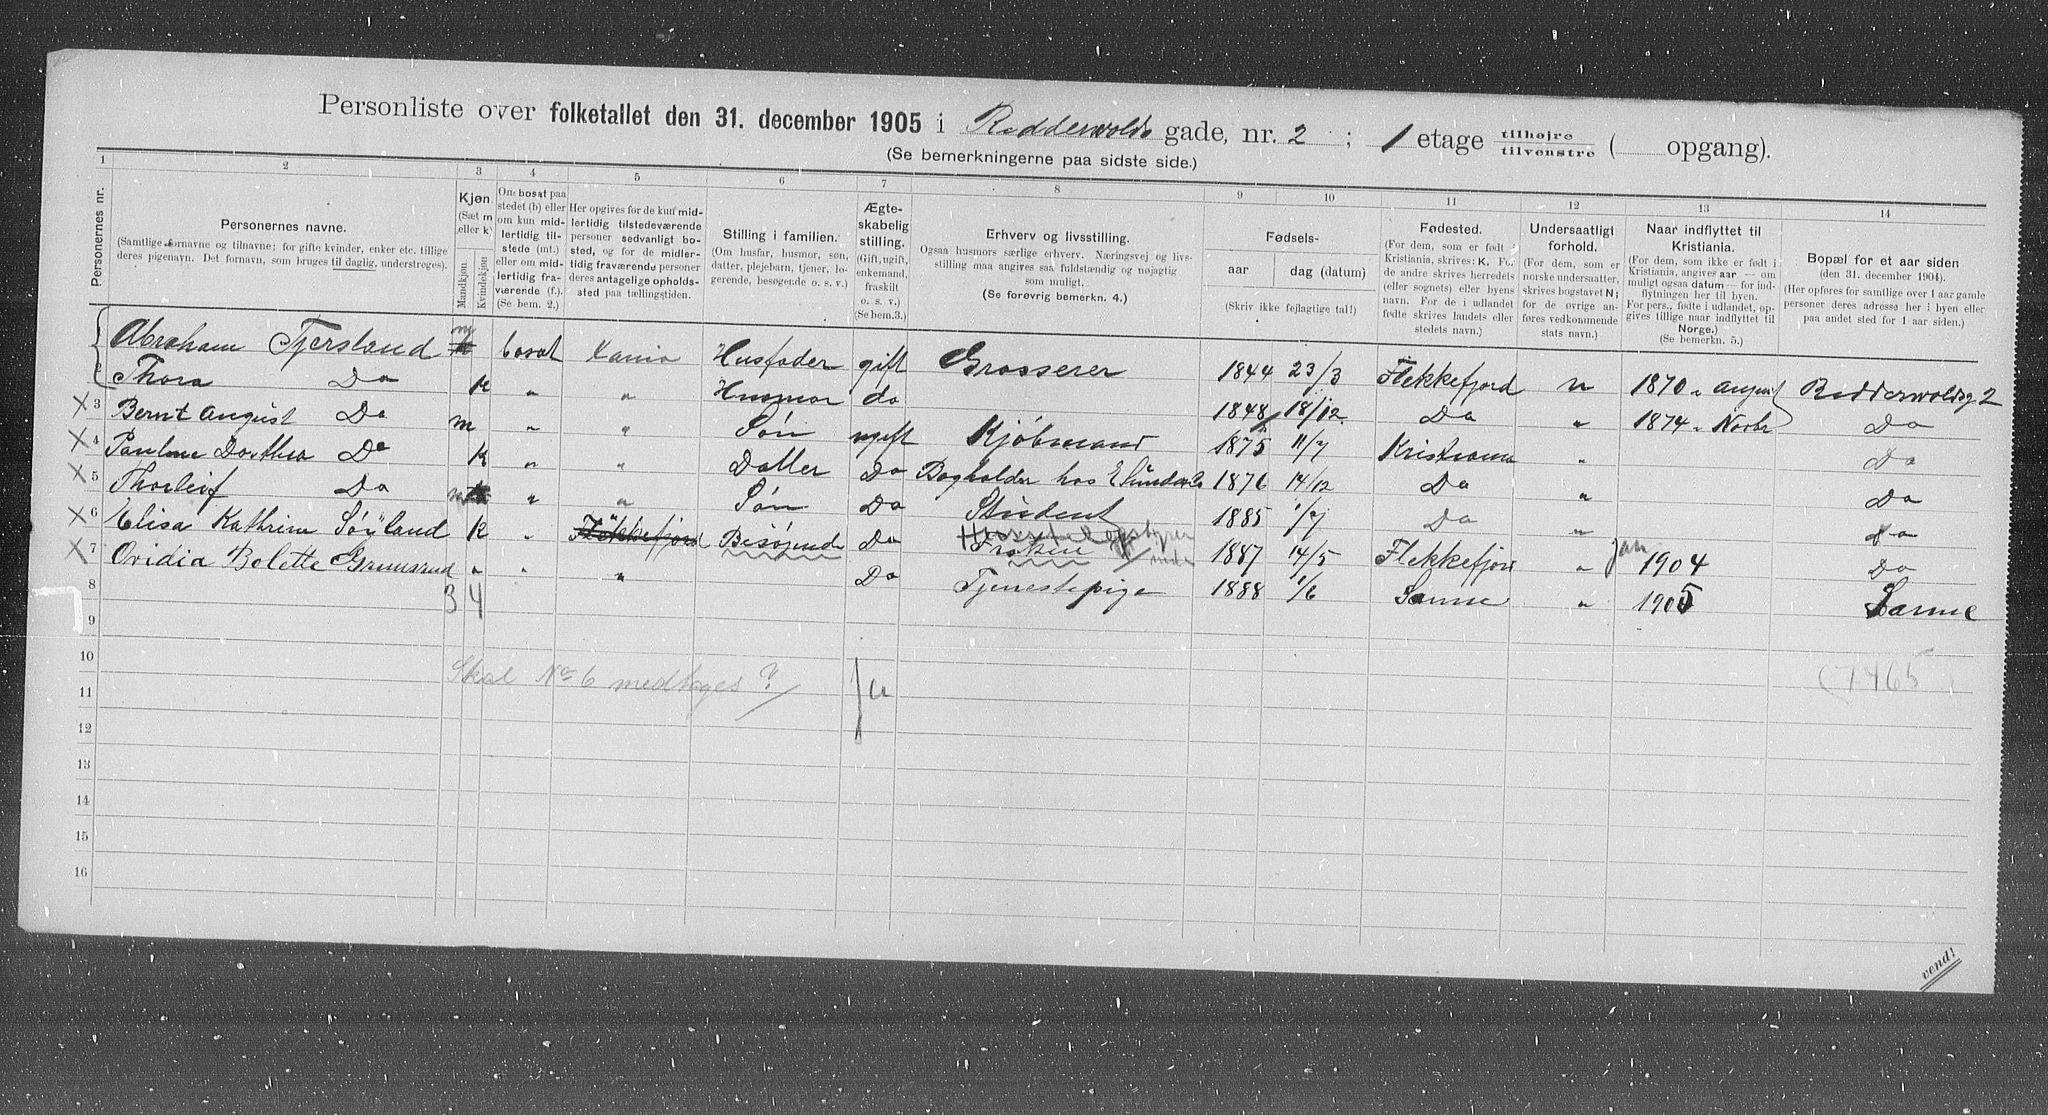 Personliste over folketallet den 31. december 1905 i Ridderwolds gade, nr. 2 ; 1 etage tilhøjre tilvenstre ( opgang).
(Se bemerkningerne paa sidste side.)
1 2 3 4 5 6 7 8 9 10 11 12 13 14
Personernes nr.
Personernes navne.
(Samtlige fornavne og tilnavne; for gifte kvinder, enker etc. tillige
deres pigenavn. Det fornavn, som bruges til daglig, understreges).
Kjøn
(Sæt m
eller k)
Mandkjøn
Kvindekjøn
Om bosat paa
stedet (b) eller
om kun mid-
lertidig til-
stede (mt.)
eller om mid-
lertidig fra-
værende (f.).
(Se bem. 2.)
Her opgives for de kun mid-
lertidig tilstedeværende
personer sedvanlig bo-
sted, og for de midler-
tidig fraværende personer
deres antagelige opholds-
sted paa tællingstiden.
Stilling i familien.
(Om husfar, husmor, søn,
datter, plejebarn, tjener, lo-
gerende, besøgende o. s. v.)
Ægte-
skabelig
stilling.
(Gift, ugift,
enkemand,
fraskilt
o. s. v.)
(Se bem. 3.)
Erhverv og livsstilling.
Ogsaa husmors særlige erhverv. Næringsvej og livs-
stilling maa angives saa fuldstændig og nøjagtig
som muligt.
(Se forøvrig bemerkn. 4.)
Fødsels-
aar dag (datum)
(Skriv ikke fejlagtige tal!)
Fødested.
(For dem, som er født i
Kristiania, skrives: K. For
de andre skrives herredets
(eller sognets) eller byens
navn. For de i udlandet
fødte skrives landets eller
stedets navn.)
Undersaatligt
forhold.
(For dem, som er
norske undersaatter,
skrives bogstavet N;
for de øvrige an-
føres vedkommende
stats navn).
Naar indflyttet til
Kristiania.
(For dem, som ikke er født i
Kristiania, angives aar — om
muligt ogsaa datum — for ind-
flytningen her til byen.
For pers., fødte i udlandet, op-
gives tillige naar indflyttet til
Norge.)
(Se bemerkn. 5.)
Bopæl for et aar siden
(den 31. december 1904).
(Her opføres for samtlige over 1 aar gamle
personer deres adresse her i byen eller
paa andet sted for 1 aar siden.)
1 Abraham Tjersland m bosat Xania Husfader gift Grosserer 1844 23/3 Flekkefjord n 1870 August Ridderwoldsg 2
2 Thora Do k " " Husmor do 1848 18/12 Do " 1874 Novbr Do
3 Bernt August Do m " " Søn ugift Kjøbmand 1875 11/7 Kristiania " Do
4 Pauline Dorthea Do k " " Datter Do Bogholder hos 1876 14/12 Do " Do
5 Thorleif Do m " " Søn Do Student 1885 1/7 Do " Do
6 Elisa Kathrine Søyland k " Flekkefjord Besøgende Do Frøken 1887 14/5 Flekkefjord " Jan 1904 Do
7 Ovidia Bolette Grimsrud " " " Do Tjenestepige 1888 1/6 Sanne " 1905 Sanne
8 3 4
9
10
Skal No 6 medtages? Ja (7465
11
12
13
14
15
16
vend!